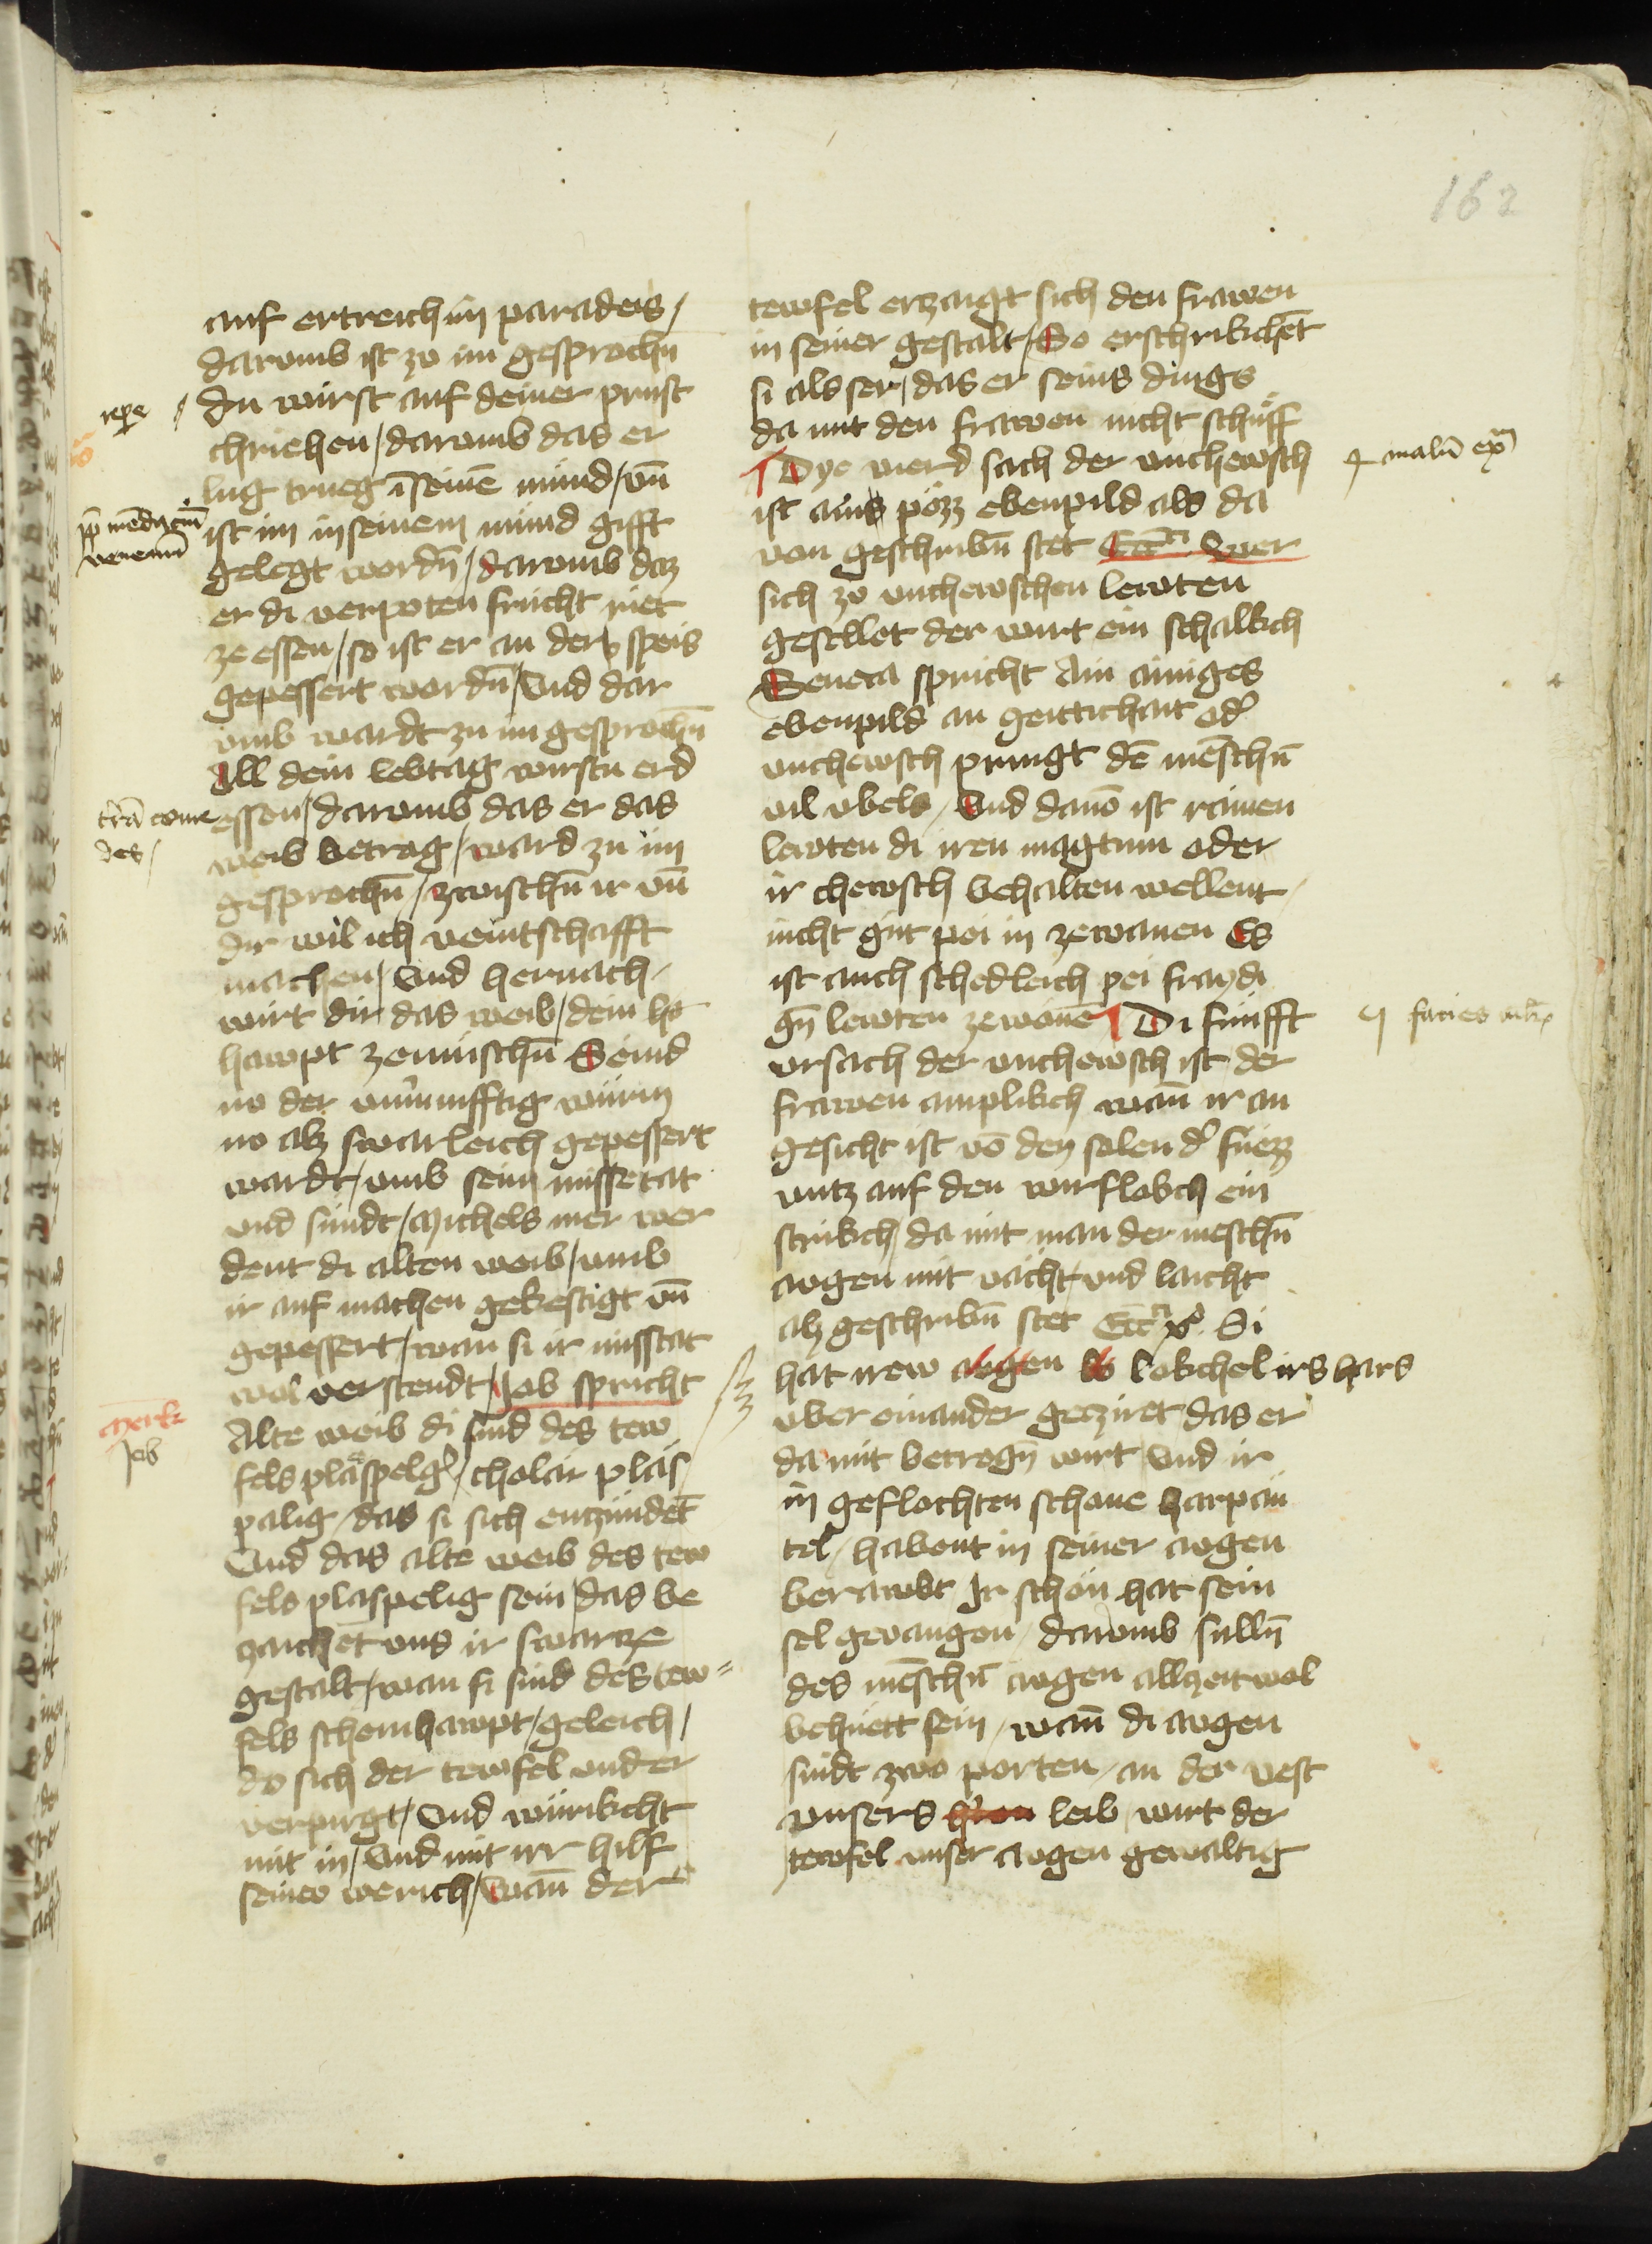 162
auf ertreich im paradeis /
darumb ist zo im gesprochn̄
du wirst auf deiner prust
chriehen / darumb das er
lug trueg ī seinē mund / vn̄
ist im in seinem mund gifft
gelegt wordn̄ / darumb daz
er di verpoten frucht riet
ze essen / so ist er an der speis
gepessert wordn̄ / Vnd dar
vmb wardt zu im gesprochn̄
All dein lebtag wirstu erd
essen / darumb das er das
weib betrog / ward zu im
gesprochn̄ / zwischn̄ ir vn̄
dir wil ich veintschafft
machen / Vnd hernach
wirt dir das weib / dein
hawpt zemischn̄ Seind
no der vnūnifftig wurm
no alz swarleich gepessert
wardt / vmb sein missetat
vnd sundt / Michels mer wer
dent di alten weib / vmb
ir auf machen gekestigt vn̄
gepessert / wan si ir misstat
wol verstendt / Job spricht
Alte weib di sind des tew
fels plaspelg / cholar plas
palig / das si sich entzundet
Vnd das alte weib des tew
fels plaspelig sein / das be
zaichet vns ir swarcze
gestalt / wan si sind des tew=
fels scheinhawpt / geleich /
do sich der tewfel vnder
verpirgt / Vnd wurikcht
mit in / Vnd mit irr hilf
seinew werich / Wan̄ der
merk
Job
venenū
des /
tewfel erzaigt sich den frawen
in seiner gestalt / So erschrikchet
si als ser / das er seins dings
da mit den frawen nicht schuff
Dye vierd sach der vnchewsch
ist ains pözz ebenpild als da
von geschribn̄ stet Ecc̄ Wer
sich zo vnchewschen lewten
gesellet der wirt ein schalkch
Seneca spricht Ain ainiges
ebenpild an geitichait od
vnchewsch pringt dē mēschn̄
vil vbels / Vnd dauō ist rainen
lewten di iren magtum oder
ir chewsch behalten wellent /
nicht gut pei in zewanen Es
ist auch schedleich pei fraydi
gn̄ lewten zewonē Di funfft
vrsach der vnchewsch ist der
frawen anplikch wan̄ ir an
gesicht ist vō den solen d fuezz
vntz auf den wirflobch ein
strikch / da mit man der meschn̄
awgen mit vächt / vnd laicht
alz geschribn̄ stet Ecc̄ Si
hat irew awgen lokchel irs hars
vber einander geziret das er
da mit betrogn̄ wirt / Vnd ir
in geflochten schone harpan
tel / habent in seiner awgen
berawbt Ir schon hat sein
sel geuangen / darumb sulln̄
des mēschn̄ awgen allzeit wol
behuett sein / wan̄ di awgen
sindt zwo porten / an der vest
vnsers leib wirt der
tewfel vnser awgen gewaltig
malū exᵐ
facies